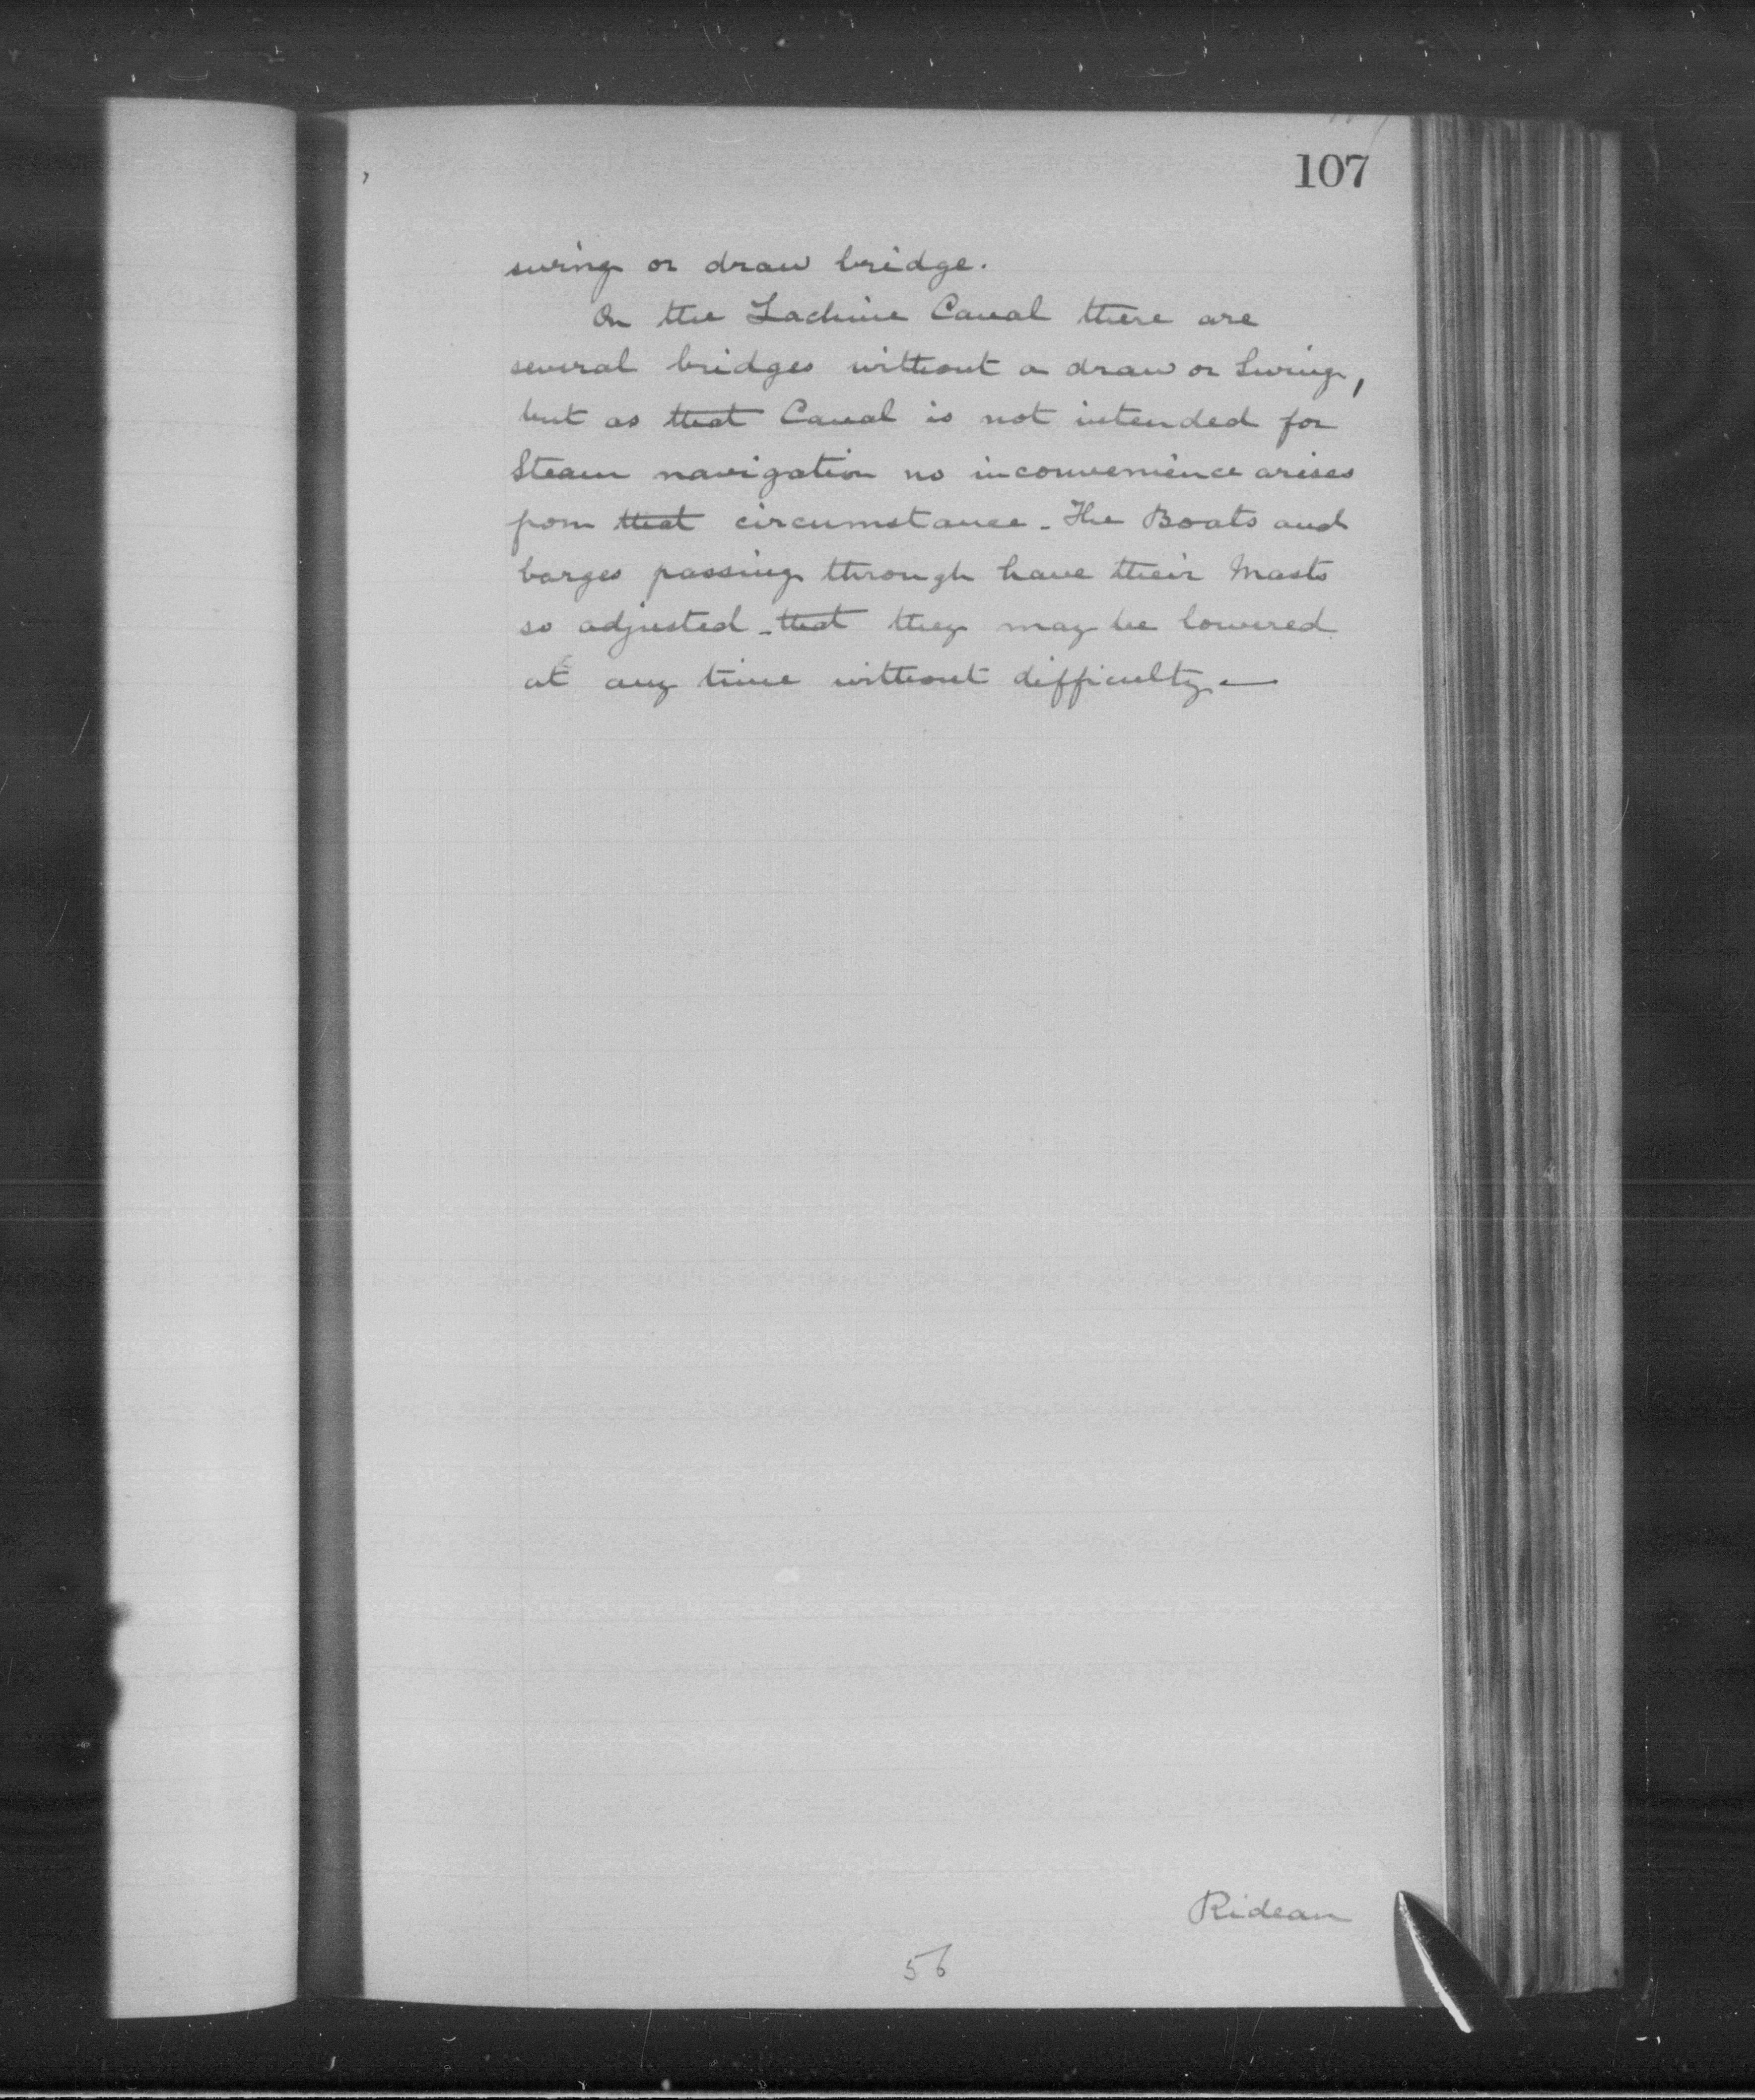 107
swing or draw bridge.
On the Lachine Canal there are
several bridges without a draw or Swing,
but as that Canal is not intended for
Steam navigation no inconvenience arises
from that circumstance - The Boats and
barges passing through have their Masts
so adjusted - that they may be lowered
at any time without difficulty. —
Rideau
56